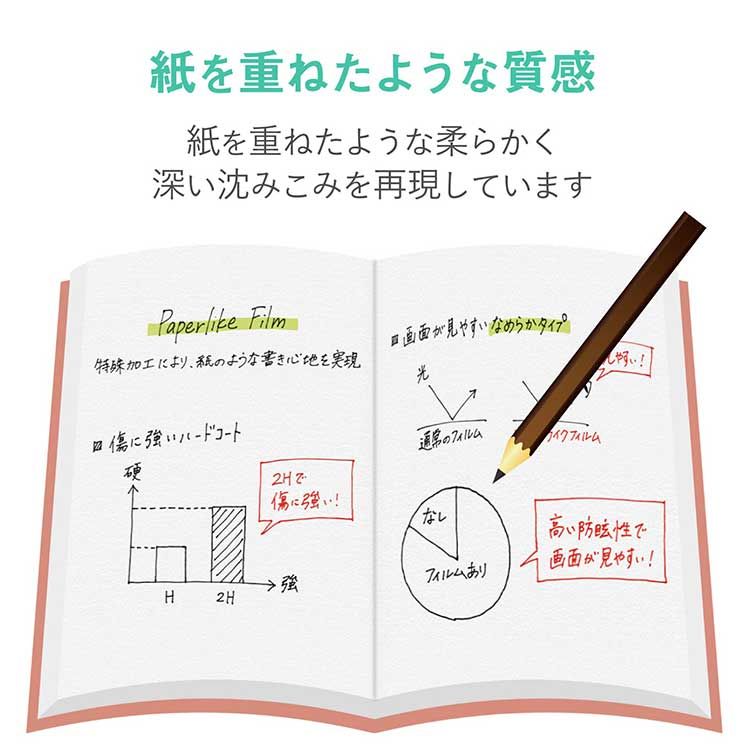 紙を重ねたような質感
紙を重ねたような柔らかく
深い沈みこみを再現しています
Paperlike Film
特殊加工により、紙のような書き心地を実現
傷に強いハードコート
硬
2Hで
傷に強い!
H
2H
強
画面が見やすいなめらかタイプ
光
しやすい!
通常のフィルム
ライクフィルム
なし
フィルムあり
高い防眩性で
画面が見やすい!